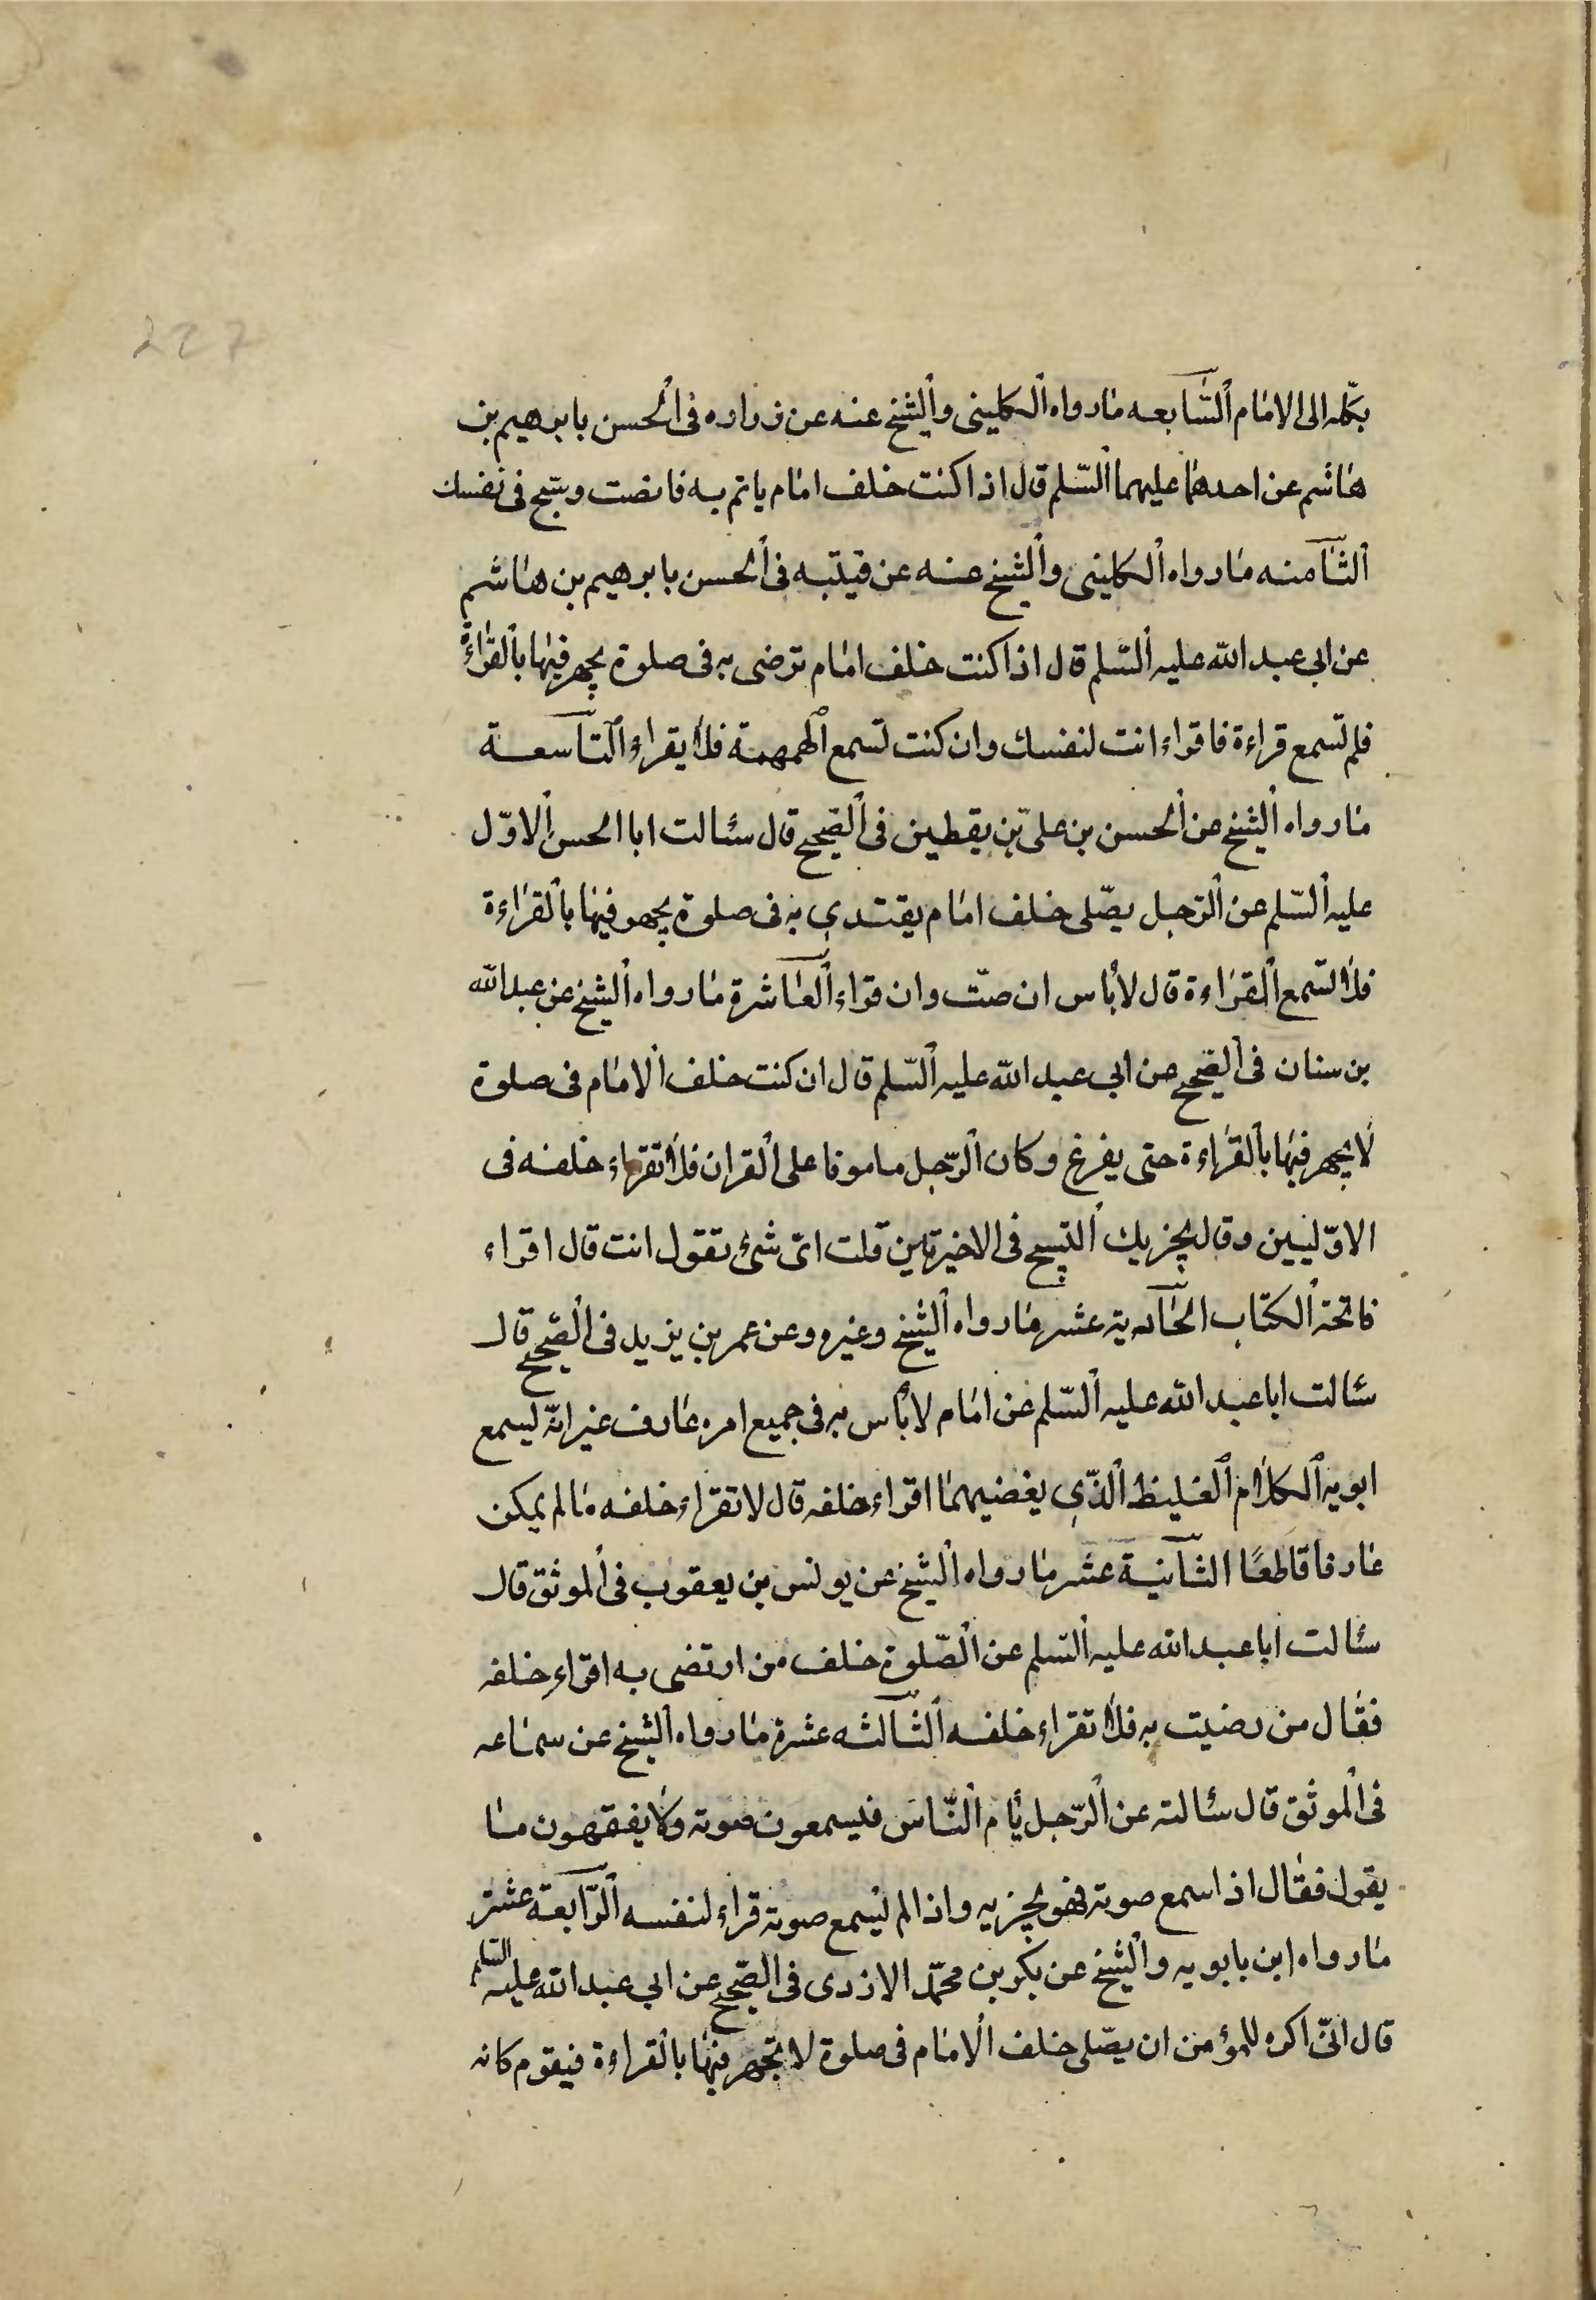 227
بكله الى الامام السّابعه مارواه الكلينى والشيخ عنه عن زراره فى الحسن بابرهيم بن
هاشم عن احدهما عليهما السّلم قال اذا كنت خلف امام ياتم به فانصت وسبّح فى نفسك
الثّامنه مارواه الكلينى والشيخ عنه عن قيتبه فى الحسن بابرهيم بن هاشم
عن ابى عبد الله عليه السّلم قال اذا كنت خلف امام ترضى به فى صلوة يجهر فيها بالقراءة
فلم تسمع قراءة فاقراء انت لنفسك وان كنت تسمع الهمهمة فلا يقراء التّاسعة
مارواه الشيخ عن الحسن بن علىّ بن يقطين فى الصّحيح قال سئالت ابا الحسن الاوّل
عليه السّلم عن الرّجل يصّلى خلف امام يقتدى به فى صلوة يجهر فيها بالقراءة
فلا تسمع القراءة قال لا بأس ان صمّت وان قراء العاشرة مارواه الشيخ عن عبد الله
بن سنان فى الصّحيح عن ابى عبد الله عليه السّلم قال ان كنت خلف الامام فى صلوة
لا يجهر فيها بالقراءة حتى يفرغ وكان الرّجل مامونا على القران فلا تقراء خلفه فى
الاوّليين وقال يجزيك التسبيح فى الاخيرتين قلت اىّ شئ تقول انت قال اقراء
فاتحة الكتاب الحّادية عشر مارواه الشيخ وغيره وعن عمر بن يزيد فى الصّحيح قال
سئالت ابا عبد الله عليه السّلم عن امام لا بأس به فى جميع امره عارف غير انّه يسمع
ابويه الكلام الغليظ الذّى يغضيهما اقراء خلفه قال لا تقراء خلفه مالم يكن
عارفا قاطعًا الثّانية عشر مارواه الشيخ عن يونس بن يعقوب فى الموثق قال
سئالت ابا عبد الله عليه السّلم عن الصّلوة خلف من ارتضى به اقراء خلفه
فقال من رضيت به فلا تقراء خلفه الثّالثه عشرة مارواه الشيخ عن سماعه
فى الموثق قال سئالته عن الرّجل يأم النّاس فيسمعون صوته ولا يفقهون ما
يقول فقال اذا سمع صوته فهو يجزيه واذا لم يسمع صوته قراء لنفسه الرّابعة عشر
مارواه ابن بابويه والشيخ عن بكر بن محمّد الازدى فى الصّحيح عن ابى عبد الله عليه السّلم
قال انّى اكره للمؤمن ان يصّلى خلف الامام فى صلوة لا يجهر فيها بالقراءة فيقوم كانه